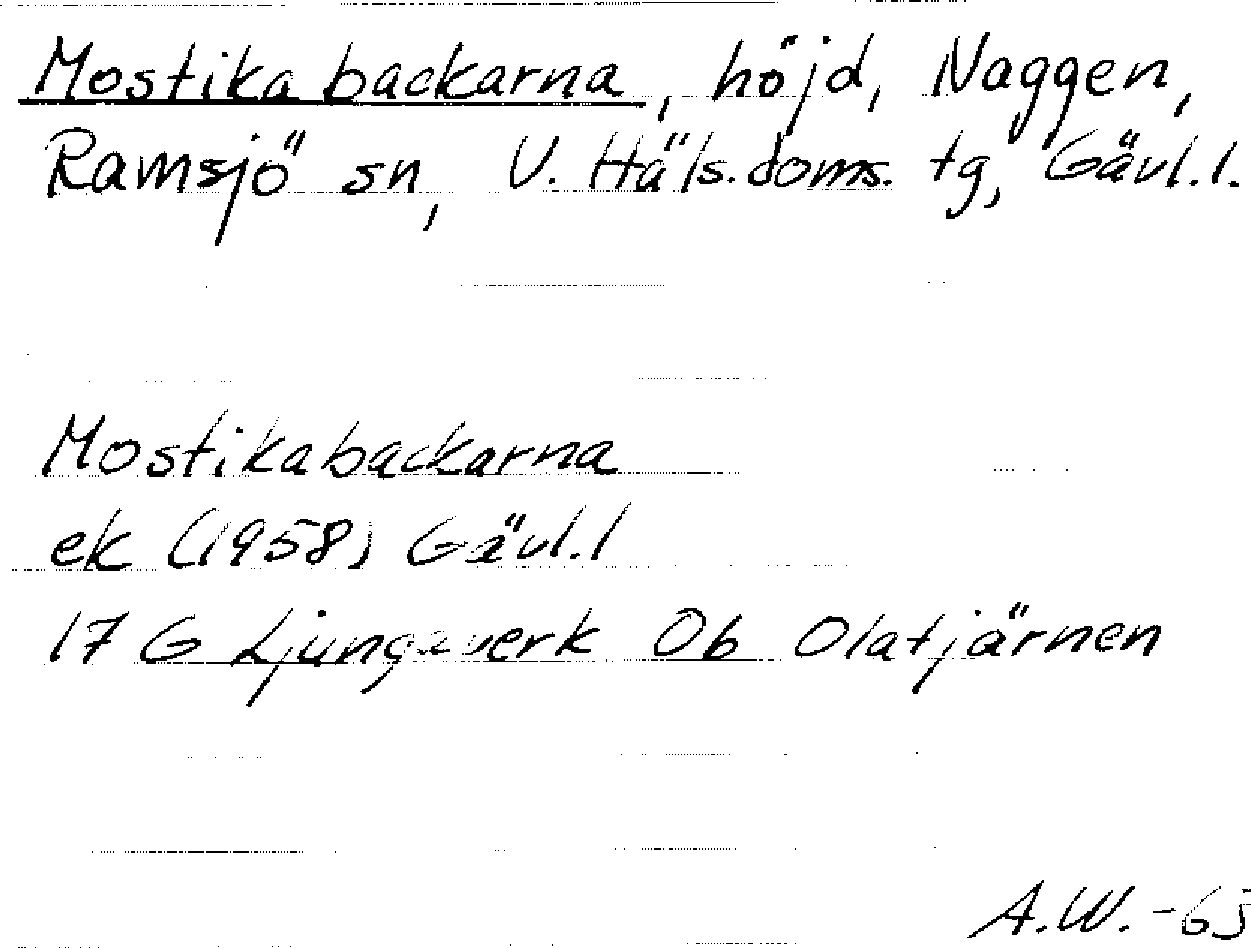 Mostikabackarna, höjd, Naggen,
Ramsjö sn, V. Häls. doms. tg, Gävl.l.
Mostikabackarna
ek (1958) Gävl.l
17 G Ljungaverk Ob Olatjärnen
A.W.